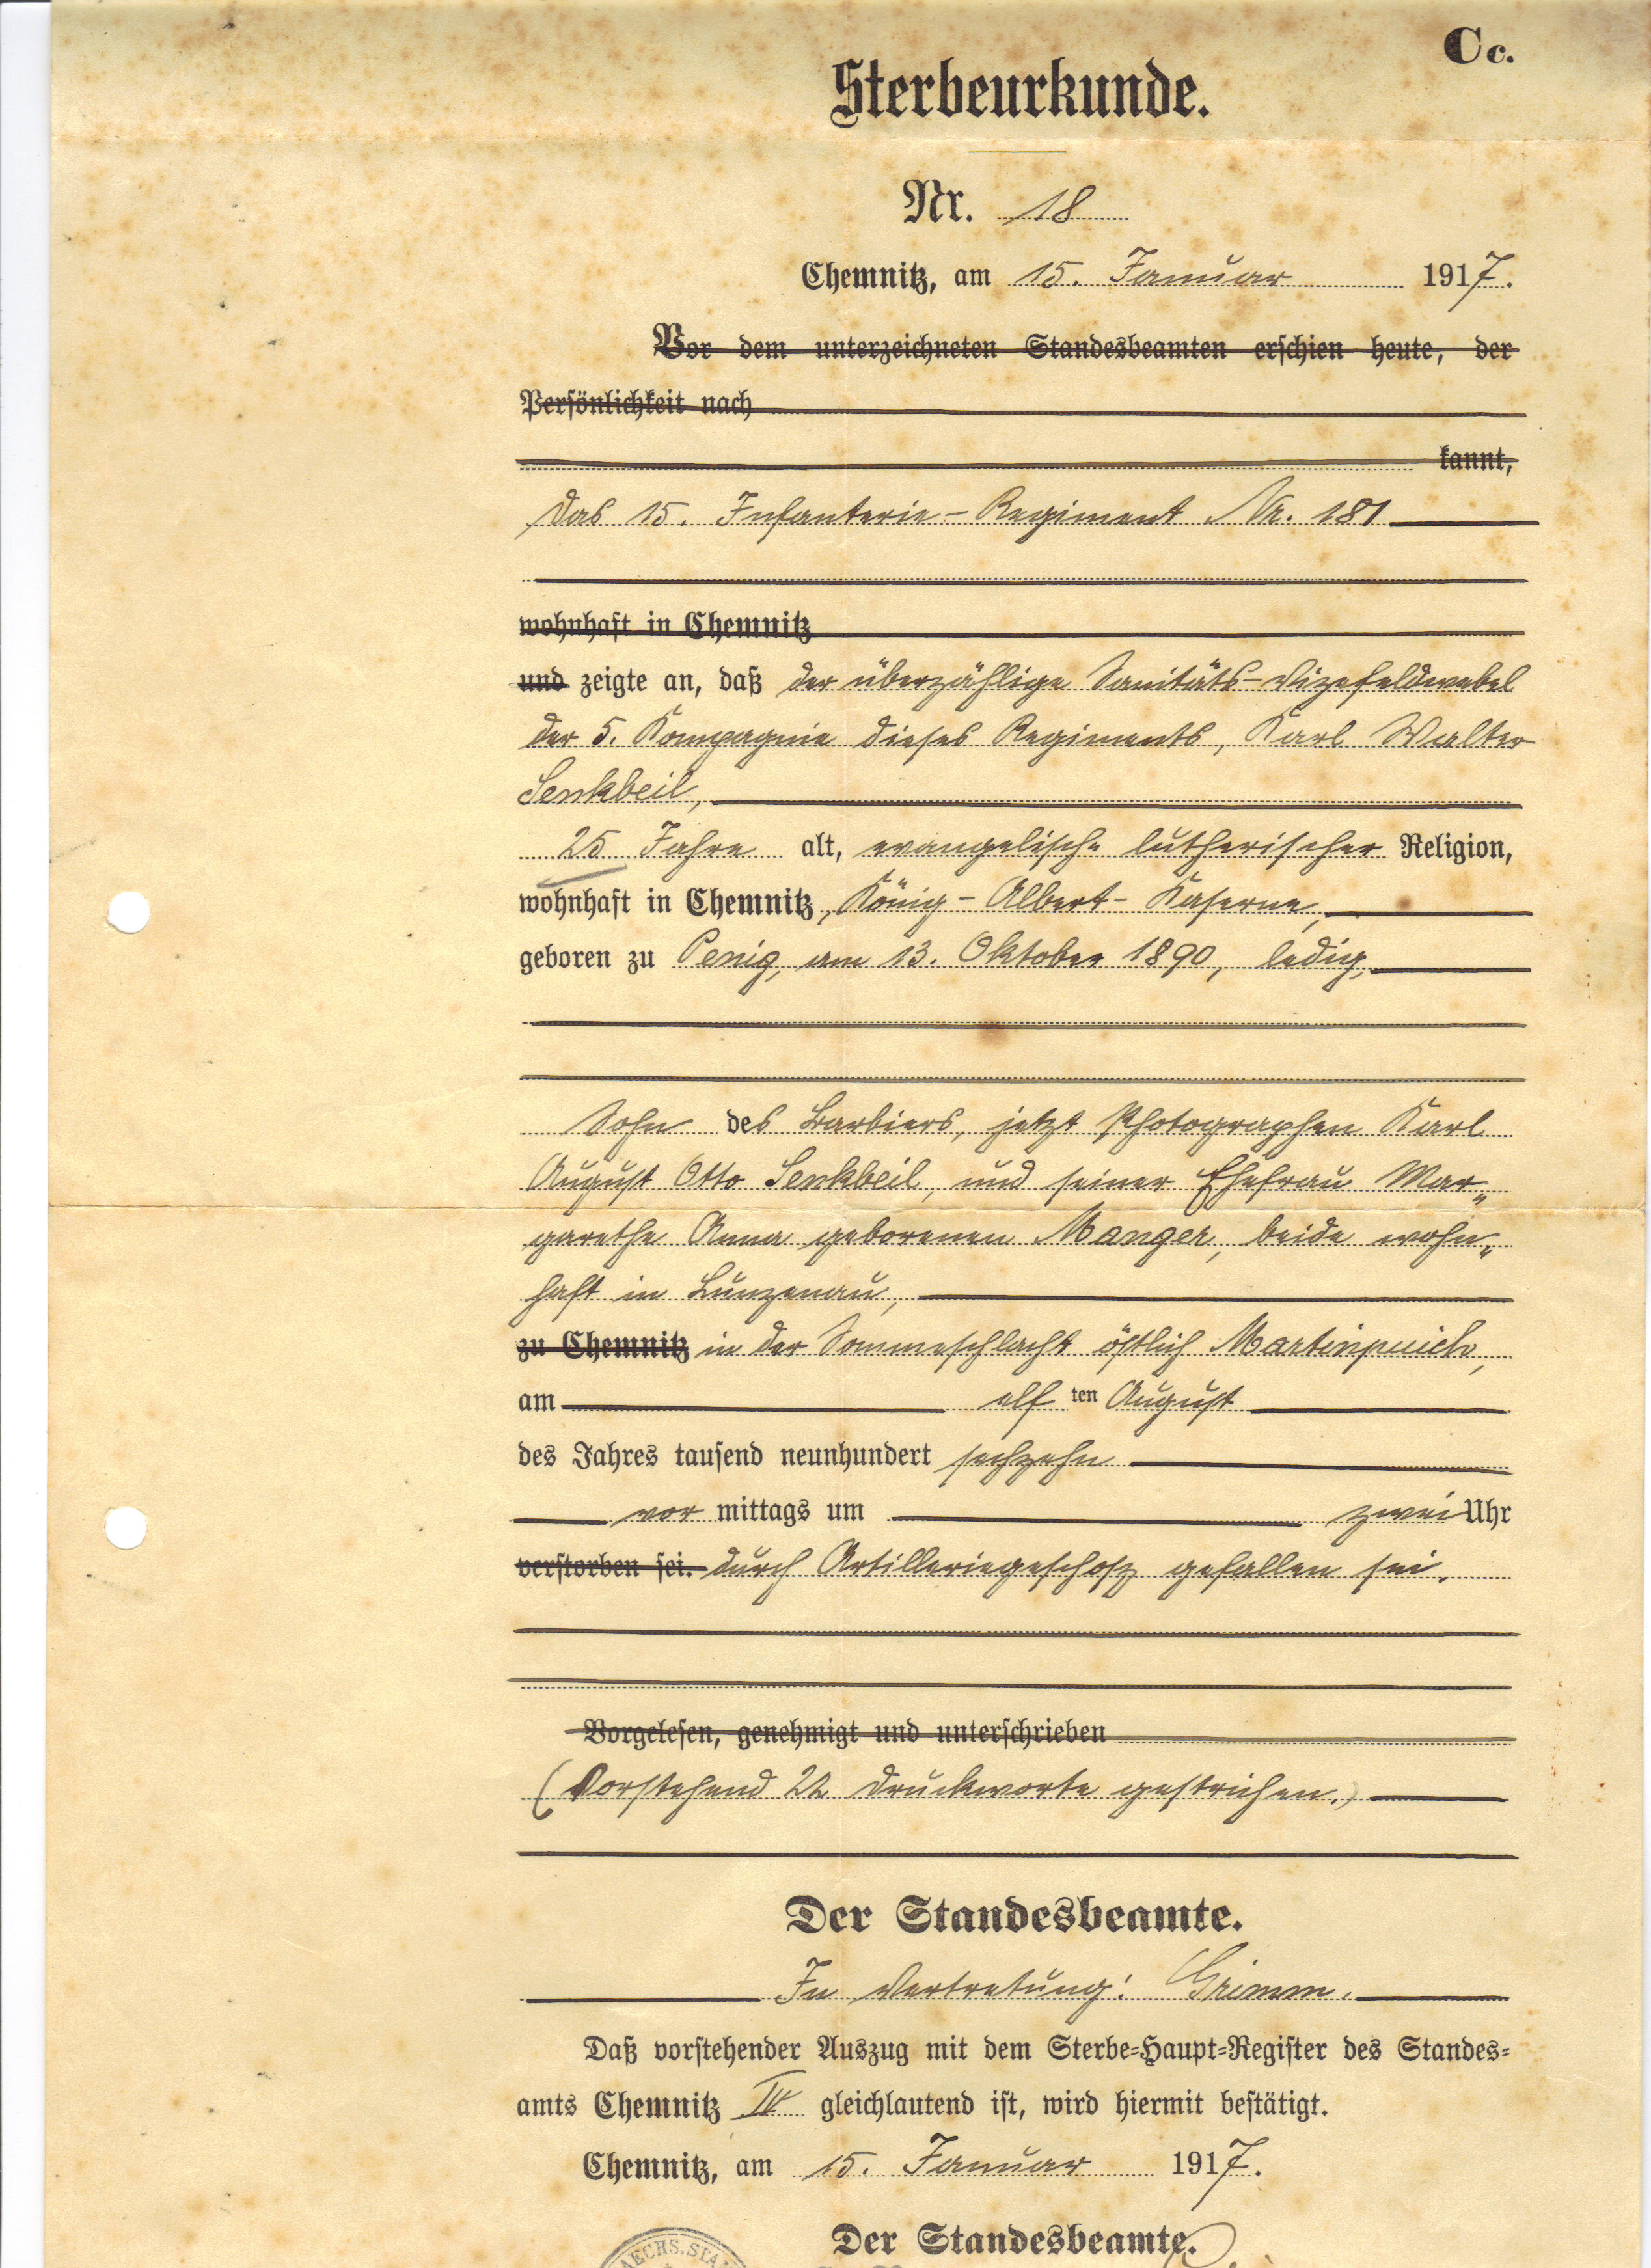 Cc.
Sterbeurkunde.
Nr. 18
Chemnitz, am 15. Januar 1917.
Vor dem unterzeichneten Standesbeamten erschien heute, der
Persönlichkeit nach
kannt,
das 15. Infanterie-Regiment Nr. 181
wohnhaft in Chemnitz
und zeigte an, daß der überzählige Sanitäts-Vizefeldwebel
der 5. Kompagnie dieses Regiments, Karl Walter
Senkbeil,
25 Jahre alt, evangelisch-lutherischer Religion,
wohnhaft in Chemnitz, König-Albert-Kaserne,
geboren zu Penig, am 13. Oktober 1890, ledig,
Sohn des Barbiers, jetzt Photographen Karl
August Otto Senkbeil, und seiner Ehefrau Mar„
garethe Anna geborenen Manger, beide wohn„
haft in Lunzenau,
zu Chemnitz in der Sommeschlacht östlich Martinpuich,
am elf ten August
des Jahres tausend neunhundert sechzehn
vor mittags um zwei Uhr
verstorben sei. durch Artilleriegeschoß gefallen sei.
Vorgelesen, genehmigt und unterschrieben
(Vorstehend 22 Druckworte gestrichen.)
Der Standesbeamte.
In Vertretung: Grimm.
Daß vorstehender Auszug mit dem Sterbe-Haupt-Register des Standes-
amts Chemnitz IV gleichlautend ist, wird hiermit bestätigt.
Chemnitz, am 15. Januar 1917.
Der Standesbeamte.
AECHS. STA